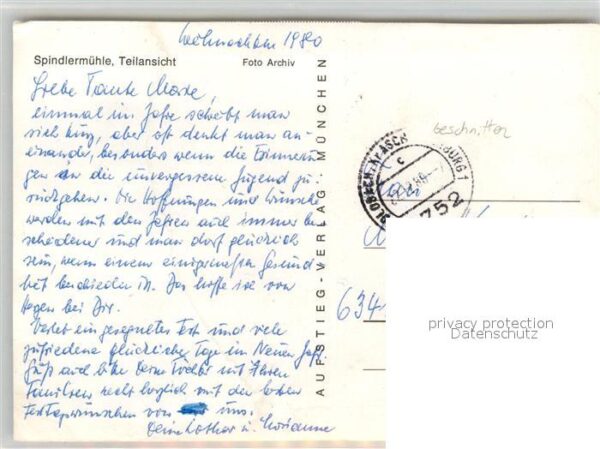 Weihnachten 1980
Spindlermühle, Teilansicht
Foto Archiv
Liebe Tante Marie,
einmal im Jahre schreibt man
sich kurz, aber oft denkt man an-
einander, besonders wenn die Erinnerun-
gen an die unvergessene Jugend zu-
rückgehen. Die Hoffnungen und Wünsche
werden mit den Jahren auch immer be-
scheidener und man darf glücklich
sein, wenn einem einigermaßen Gesund-
heit beschieden ist. Das hoffe ich von
Herzen bei Dir.
ein gesegnetes Fest und viele
zufriedene glückliche Tage im Neuen Jahr.
Grüß auch bitte Deine Töchter mit Ihren
Familien recht herzlich mit den besten
Festtagswünschen von uns.
Deine Lothar u. Marianne
AUFSTIEG-VERLAG MÜNCHEN
beschnitten
BURG 1
c
752
634
privacy protection
Datenschutz